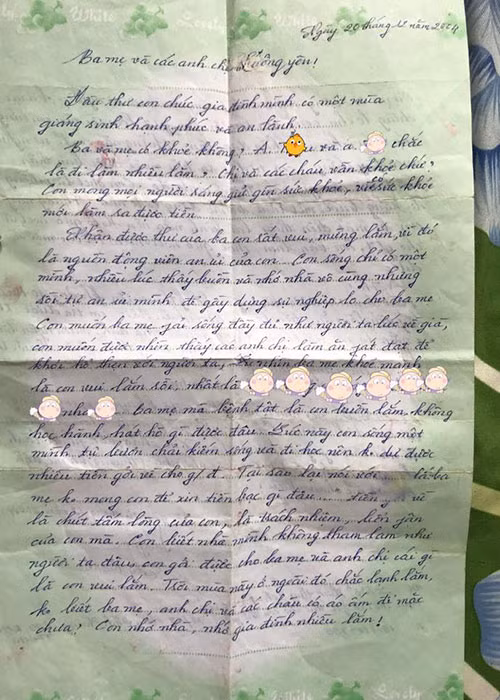 Ngày 20 tháng 12 năm 2004
Ba mẹ và các anh chị thương yêu!
Đầu thư con chúc gia đình mình có một mùa
giáng sinh hạnh phúc và an lành.
Ba và mẹ có khoẻ không? A. và a chắc
là đi làm nhiều lắm? Chị và các cháu vẫn khoẻ chứ?
Con mong mọi người sáng giữ gìn sức khoẻ, vì có sức khỏe
mới làm ra được tiền.
Nhận được thư của ba con rất vui, mừng lắm, vì đó
là nguồn động viên an ủi của con. Con sống chỉ có một
mình, nhiều lúc thấy buồn và nhớ nhà vô cùng nhưng
rồi tự an ủi mình để gây dựng sự nghiệp lo cho ba mẹ
Con muốn ba mẹ fải sống đầy đủ như người ta lúc về già,
con muốn được nhìn thấy các anh chị làm ăn fát đạt để
khỏi hổ thẹn với người ta, nhìn ba mẹ khoẻ mạnh
là con vui lắm rồi, nhất là
nho Ba mẹ mà bệnh tật là con buồn lắm, không
học hành, hát hò gì được đâu. Lúc này con sống một
mình, tự bươn chải kiếm sống và đi học nên k. dư được
nhiều tiền gởi về cho g/đ. Tại sao lại nói với là ba
mẹ k. mong con để xin tiền bạc gì đâu tiền gởi về
là chút tấm lòng của con, là trách nhiệm, bổn fận
của con mà. Con biết nhà mình không tham lam như
người ta đâu, con gởi được cho ba mẹ và anh chị cái gì
là con vui lắm. Trời mùa này ở ngoài đó chắc lạnh lắm,
ko biết ba mẹ, anh chị và các cháu có áo ấm để mặc
chưa? Con nhớ nhà, nhớ gia đình nhiều lắm!